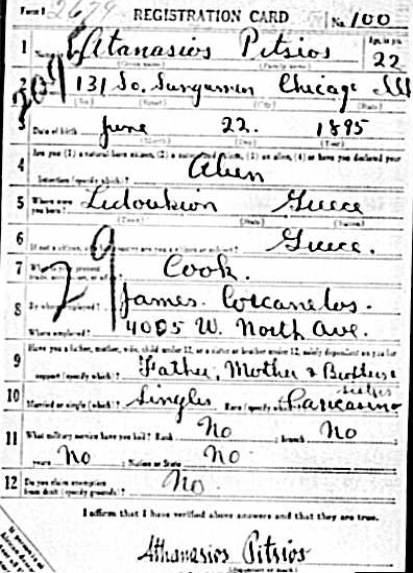 Form 1 2679 REGISTRATION CARD No. 100
1 Name in full Atanasios Pitsios Age, in yrs. 22
(Given name) (Family name)
2 131 So. Sangamon Chicago Ill
(No.) (Street) (City) (State)
3 Date of birth June 22. 1895
(Month) (Day) (Year)
4 Are you (1) a natural-born citizen, (2) a naturalized citizen, (3) an alien, (4) or have you declared your
intention (specify which)? Alien
5 Where were you born? Greece
(Town) (State) (Nation)
6 If not a citizen, of what country are you a citizen or subject? Greece.
7 What is your present trade, occupation, or office? Cook.
8 By whom employed? James
Where employed? 4005 W. North Ave.
9 Have you a father, mother, wife, child under 12, or a sister or brother under 12, solely dependent on you for
support (specify which)? Father, Mother & Brothers
sisters
10 Married or single (which)? Single Race (specify which)?
11 What military service have you had? Rank No ; branch No ;
years No ; Nation or State No
12 Do you claim exemption from draft (specify grounds)? No
I affirm that I have verified above answers and that they are true.
Athanasios Pitsios
(Signature or mark)
29